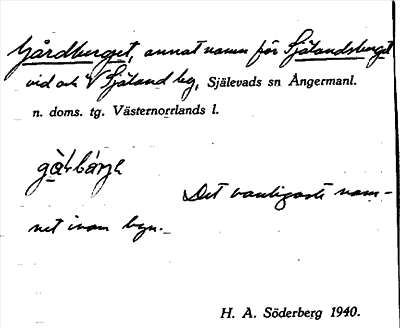 Gårdberget, annat namn för Själandsberget
vid och V Själand by, Själevads sn Ångermanl.
n. doms. tg. Västernorrlands l.
Det vanligaste nam-
net inom byn.
H. A. Söderberg 1940.